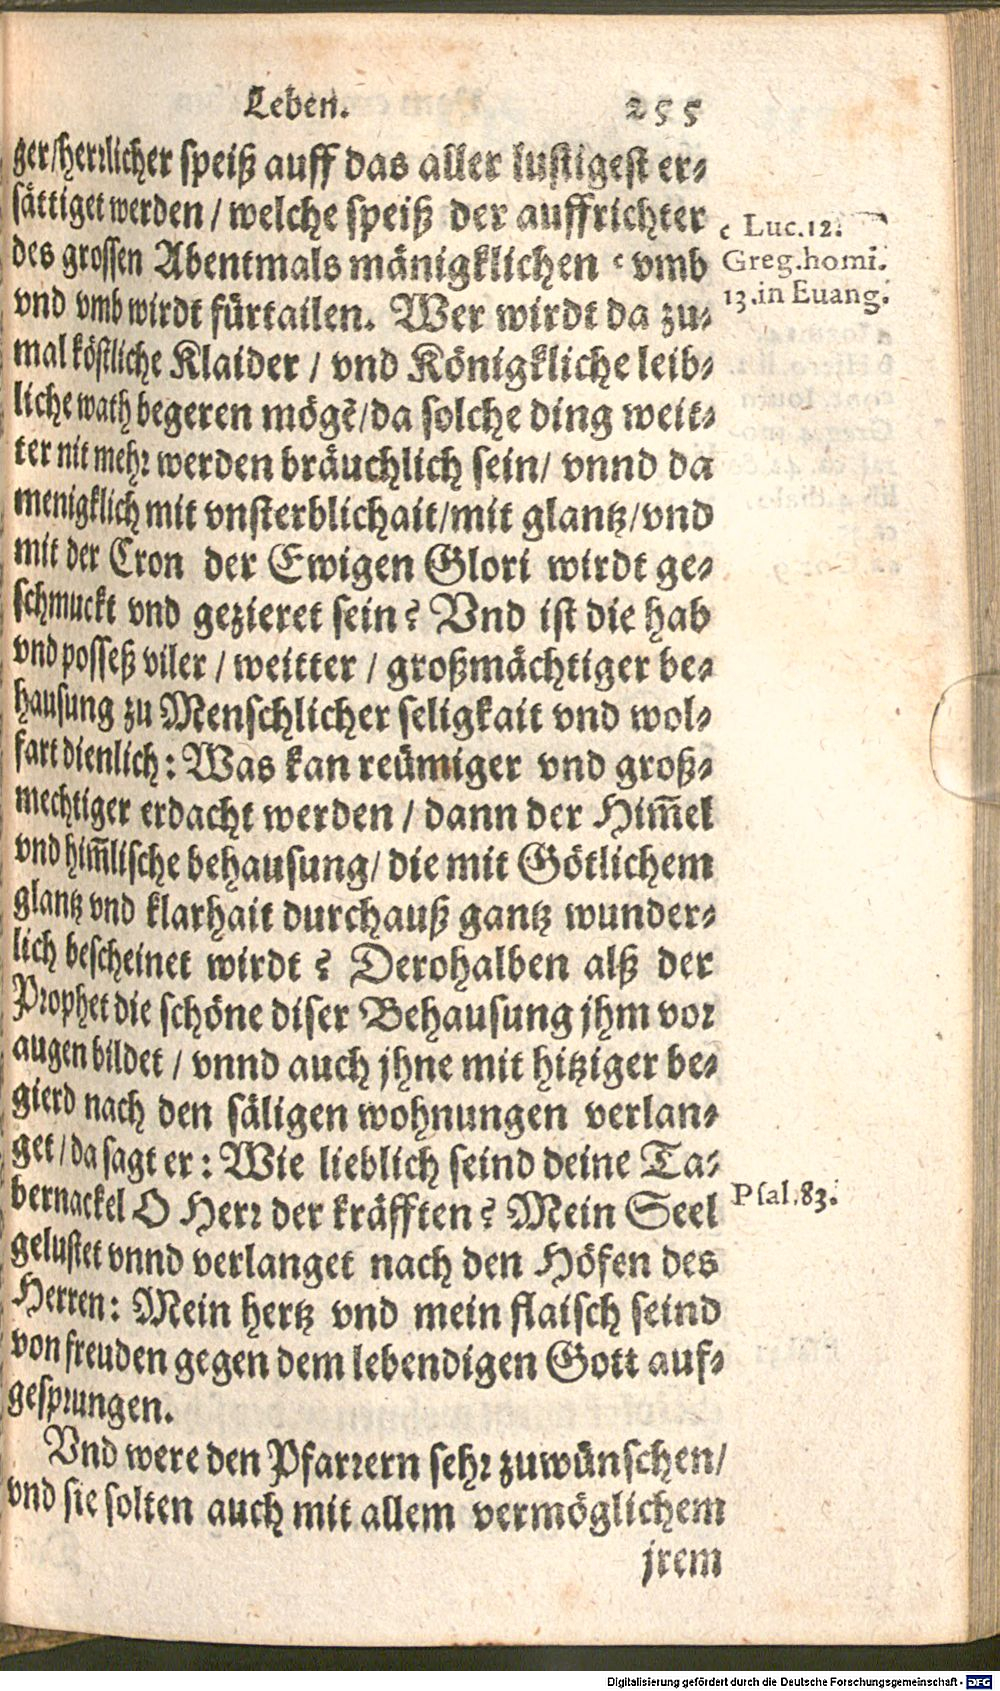 Leben. 255
ger/herꝛlicher speiß auff das aller lustigest er⸗
sättiget werden / welche speiß der auffrichter
des grossen Abentmals mänigklichen ᶜ vmb
vnd vmb wirdt fürtailen. Wer wirdt da zu⸗
mal köstliche Klaider / vnd Königkliche leib⸗
liche wath begeren mögē/da solche ding weit⸗
ter nit mehꝛ werden bräuchlich sein/ vnnd da
menigklich mit vnsterblichait/mit glantz/vnd
mit der Cron der Ewigen Glori wirdt ge⸗
schmuckt vnd gezieret sein? Vnd ist die hab
vnd posseß viler / weitter / großmächtiger be⸗
hausung zu Menschlicher seligkait vnd wol⸗
fart dienlich: Was kan reümiger vnd groß⸗
mechtiger erdacht werden / dann der Him̄el
vnd him̄lische behausung/ die mit Götlichem
glantz vnd klarhait durchauß gantz wunder⸗
lich bescheinet wirdt ? Derohalben alß der
Pꝛophet die schöne diser Behausung jhm voꝛ
augen bildet / vnnd auch jhne mit hitziger be⸗
gierd nach den säligen wohnungen verlan⸗
get / da sagt er : Wie lieblich seind deine Ta⸗
bernackel O Herꝛ der kräfften? Mein Seel
gelustet vnnd verlanget nach den Höfen des
Herren: Mein hertz vnd mein flaisch seind
von freuden gegen dem lebendigen Gott auf⸗
gespꝛungen.
Vnd were den Pfarꝛern sehꝛ zuwünschen/
vnd sie solten auch mit allem vermöglichem
jrem
c Luc.12.
Greg.homi.
13.in Euang.
Psal.83.
Digitalisierung gefördert durch die Deutsche Forschungsgemeinschaft - DFG